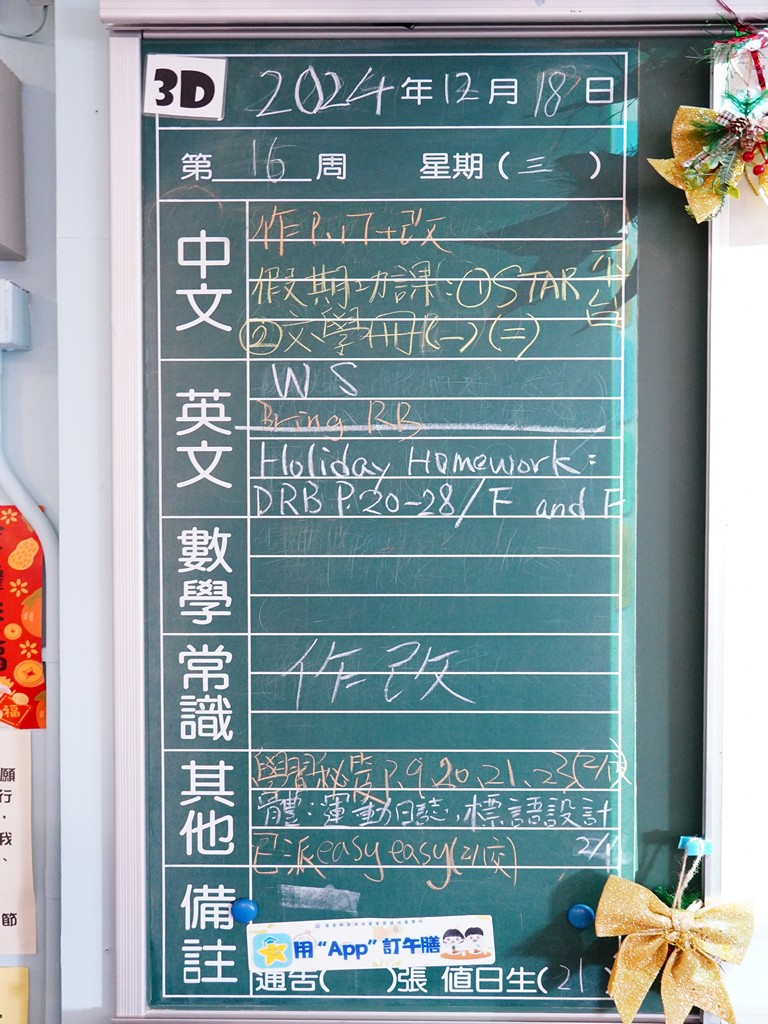 3D 2024年12月18日
第16周 星期(三)
中文
作P.17+改
假期功課:①STAR平台
②文學冊(一)(二)
英文
WS
Bring RB
Holiday Homework:
DRB P.20-28/F and F
數學
常識
作改
其他
學習秘慶P.9,20,21,23(2/1交)
體:運動日誌,標語設計
2/1
已派easy easy(2/1交)
備註
用“App”訂午膳
通告( )張 值日生(21)
福
願
行
我
節